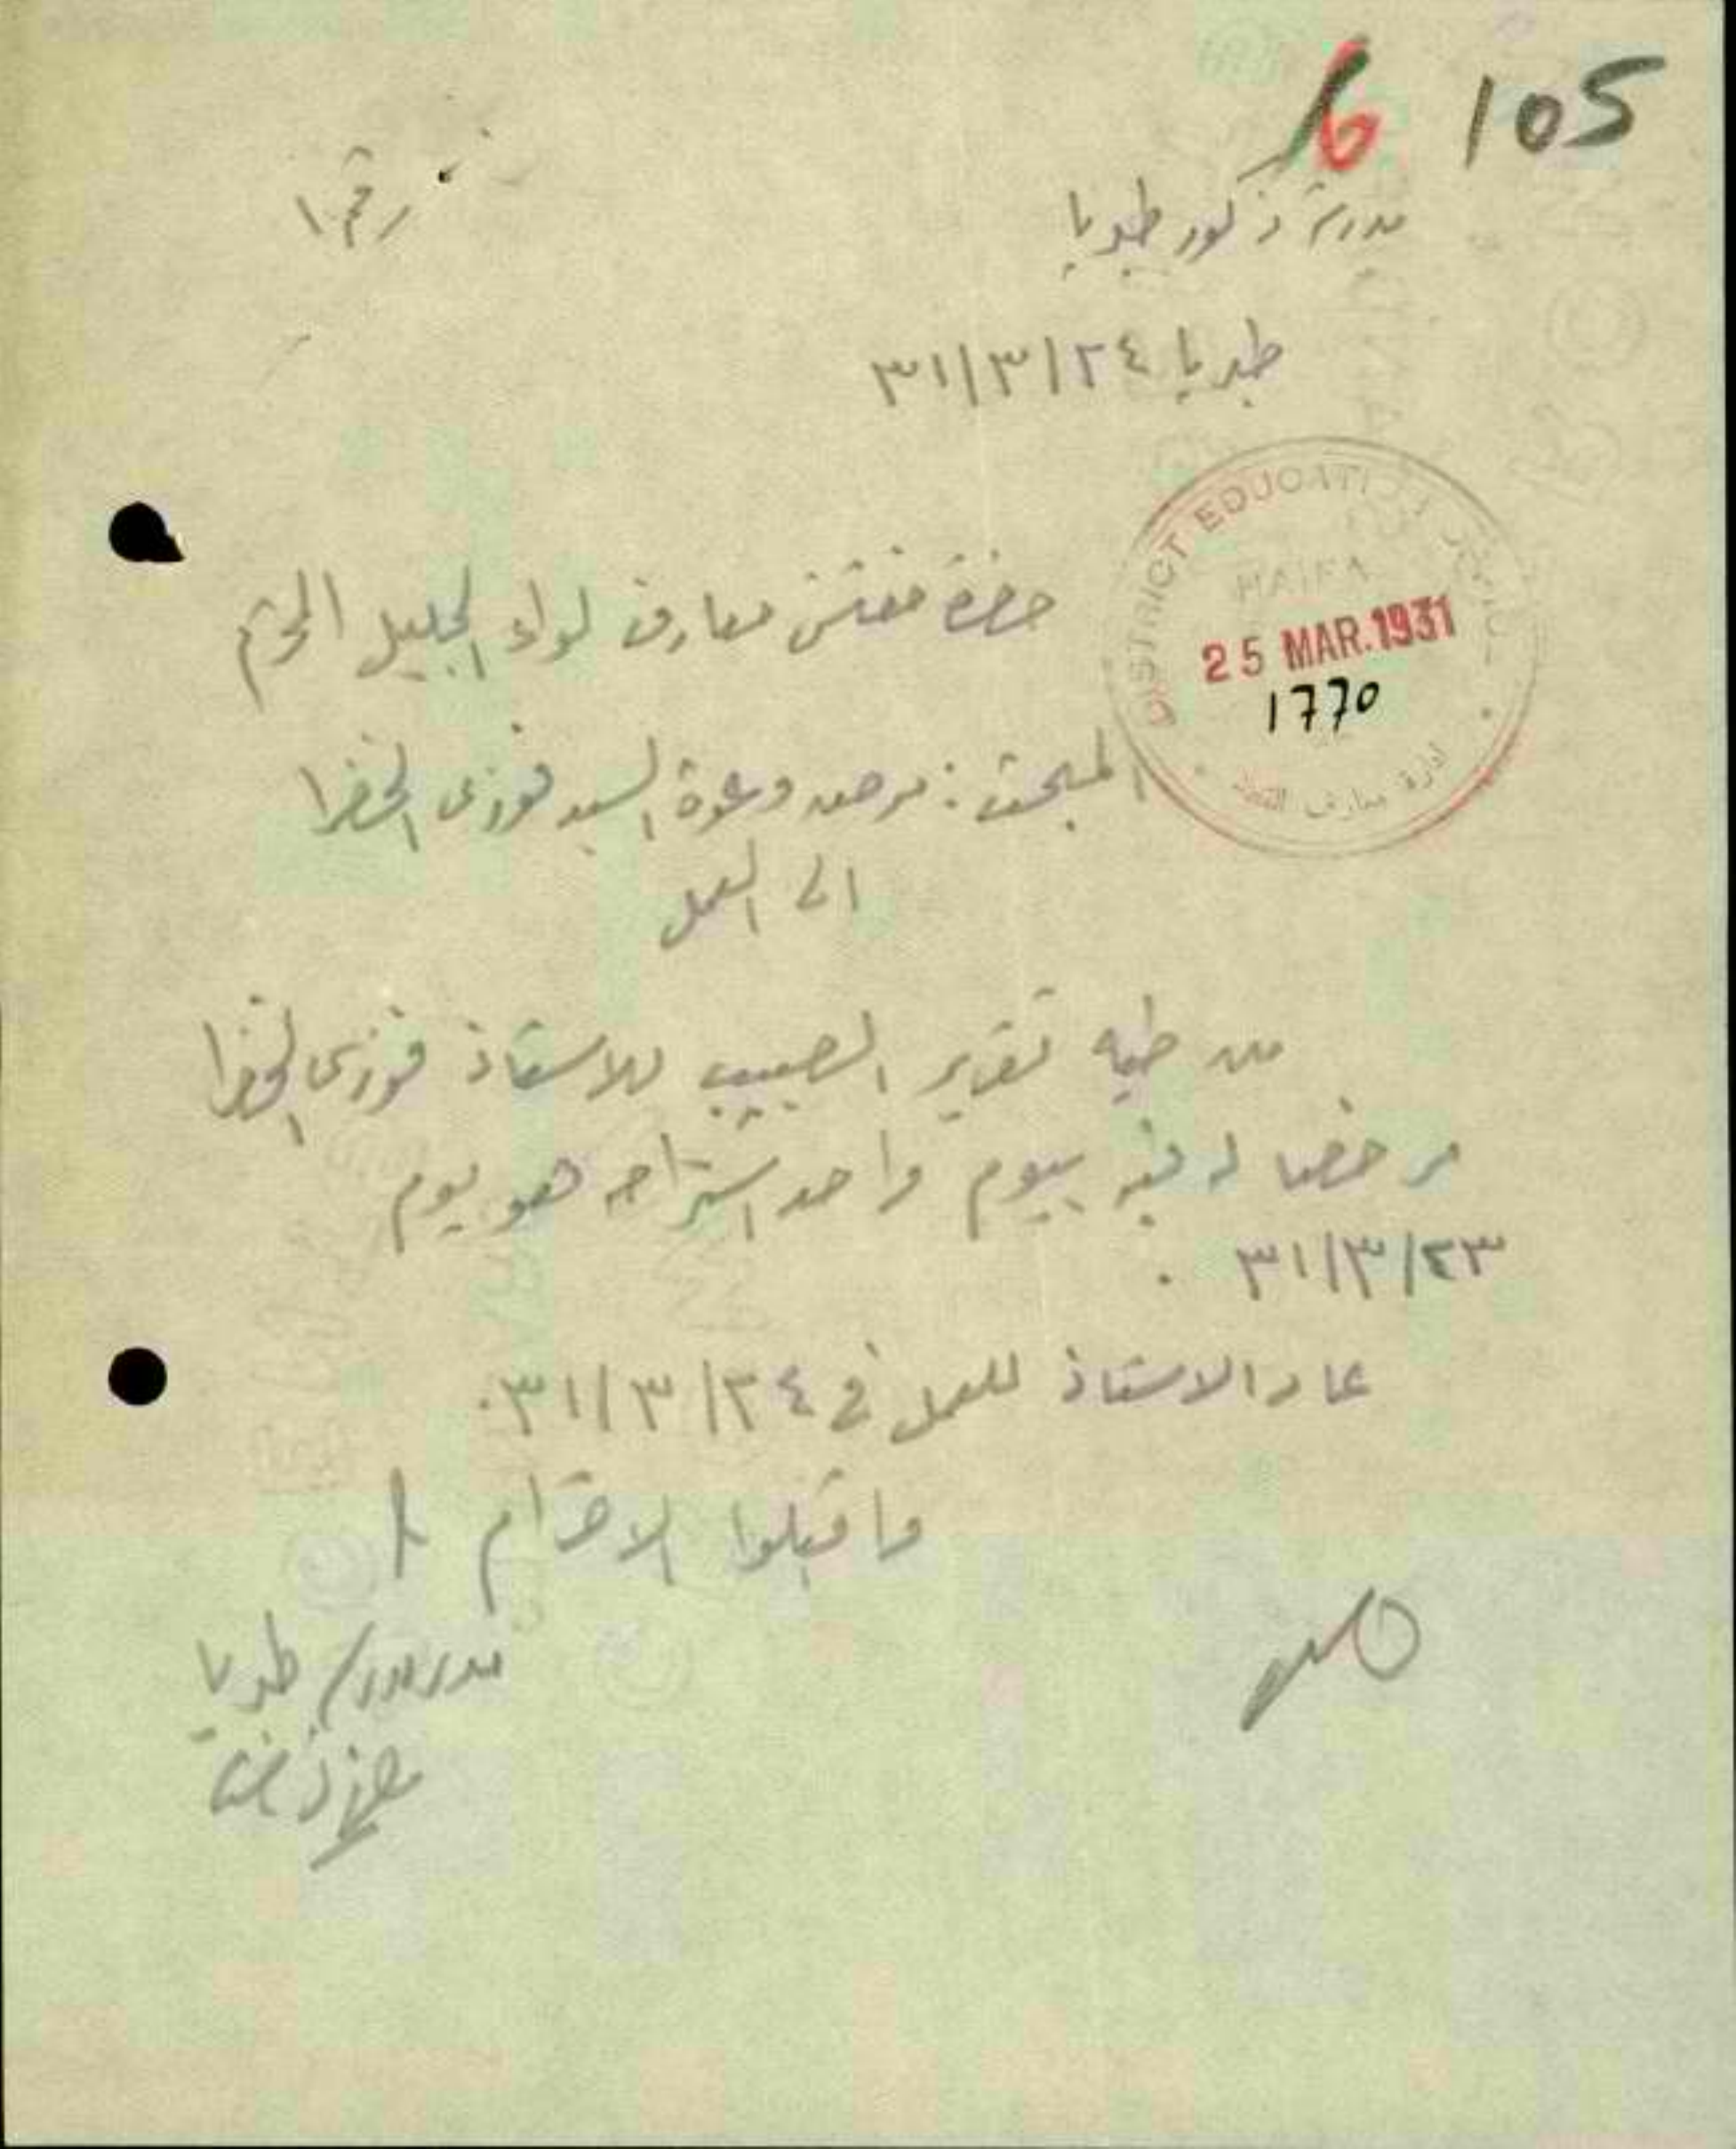 6 105
مدرسة ذكور طبريا
رقم ١
طبريا ٣١/٣/٢٤
DISTRICT EDUCATION
HAIFA
25 MAR.1931
1770
ادارة معارف
حضرة مفتش معارف لواء الجليل المحترم
المبحث : مرض وعودة السيد فوزي الخضرا
الى العمل
من طيه تقرير الطبيب للاستاذ فوزي الخضرا
مرخصا له فيه بيوم واحد استراحه هو يوم
٣١/٣/٢٣ .
عاد الاستاذ للعمل في ٣١/٣/٢٤.
واقبلوا الاحترام
مدير مدرسة طبريا